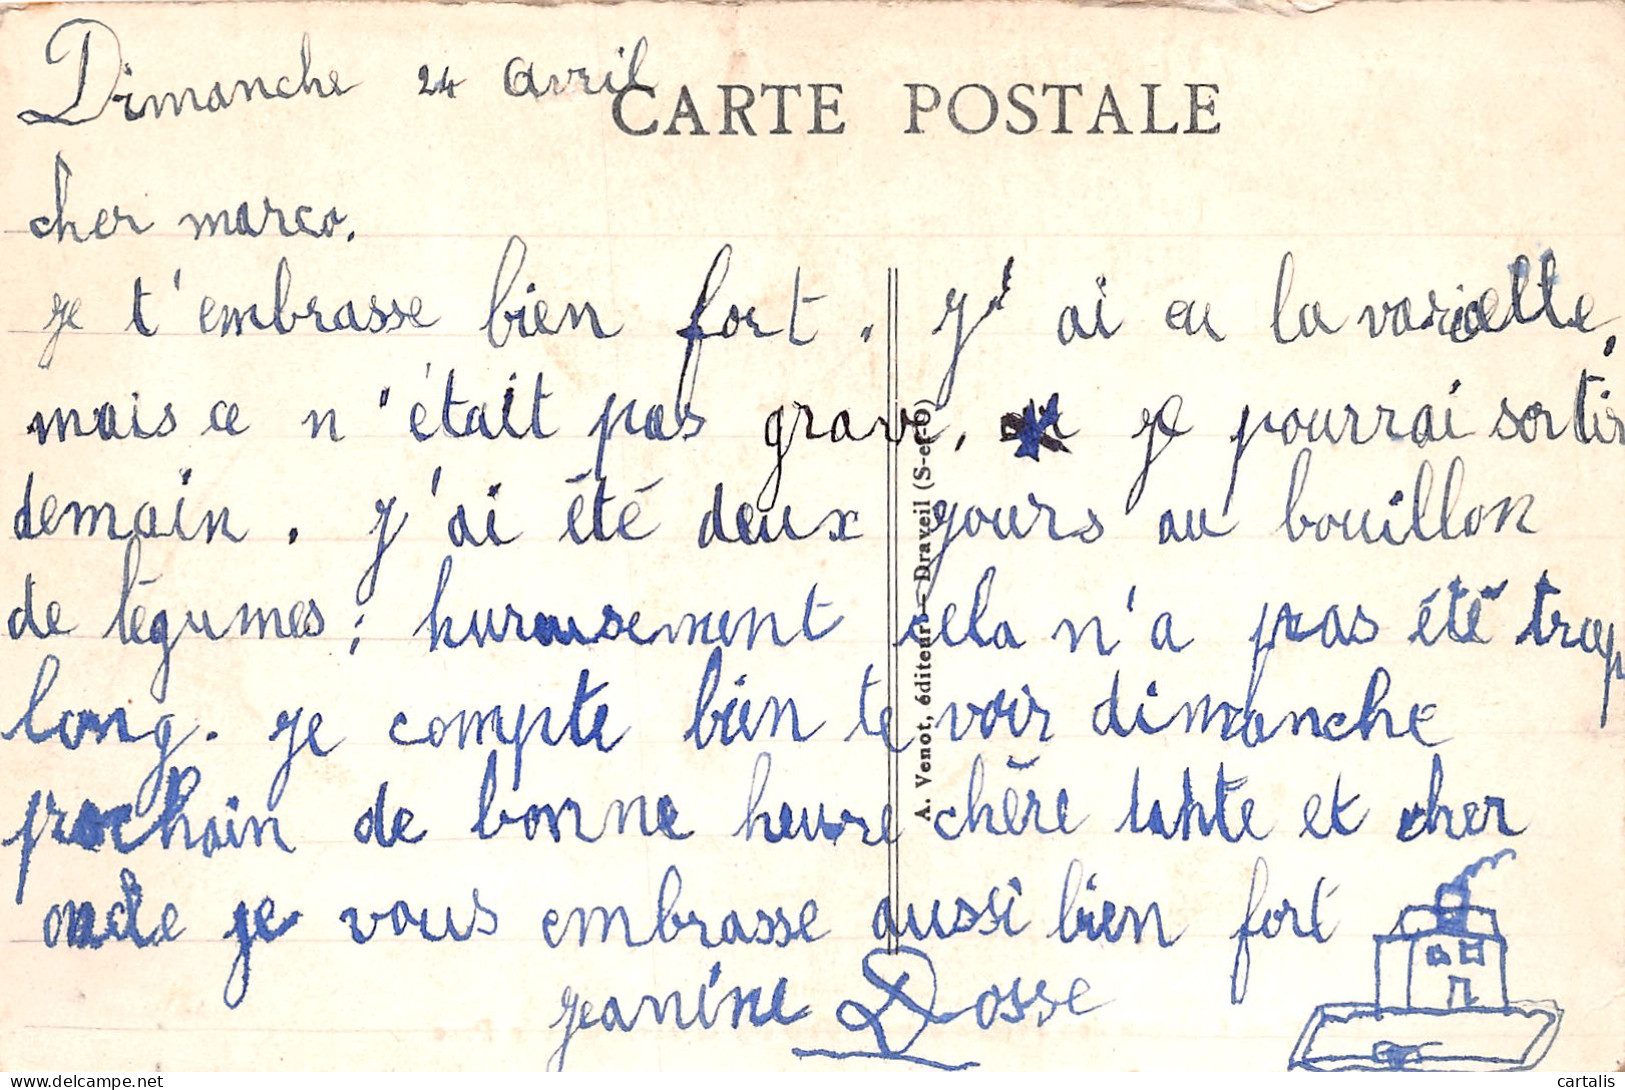 Dimanche 24 avril
CARTE POSTALE
cher marco.
je t'embrasse bien fort. J'ai eu la varicelle,
mais ce n'était pas grave. je pourrai sortir
demain. J'ai été deux jours au bouillon
de légumes; hureusement cela n'a pas été trop
long. je compte bien te voir dimanche
prochain de bonne heure chère tante et cher
oncle je vous embrasse aussi bien fort
jeanine Dosse
A. Venot, éditeur - Draveil (S-et-O)
delcampe.net
cartalis